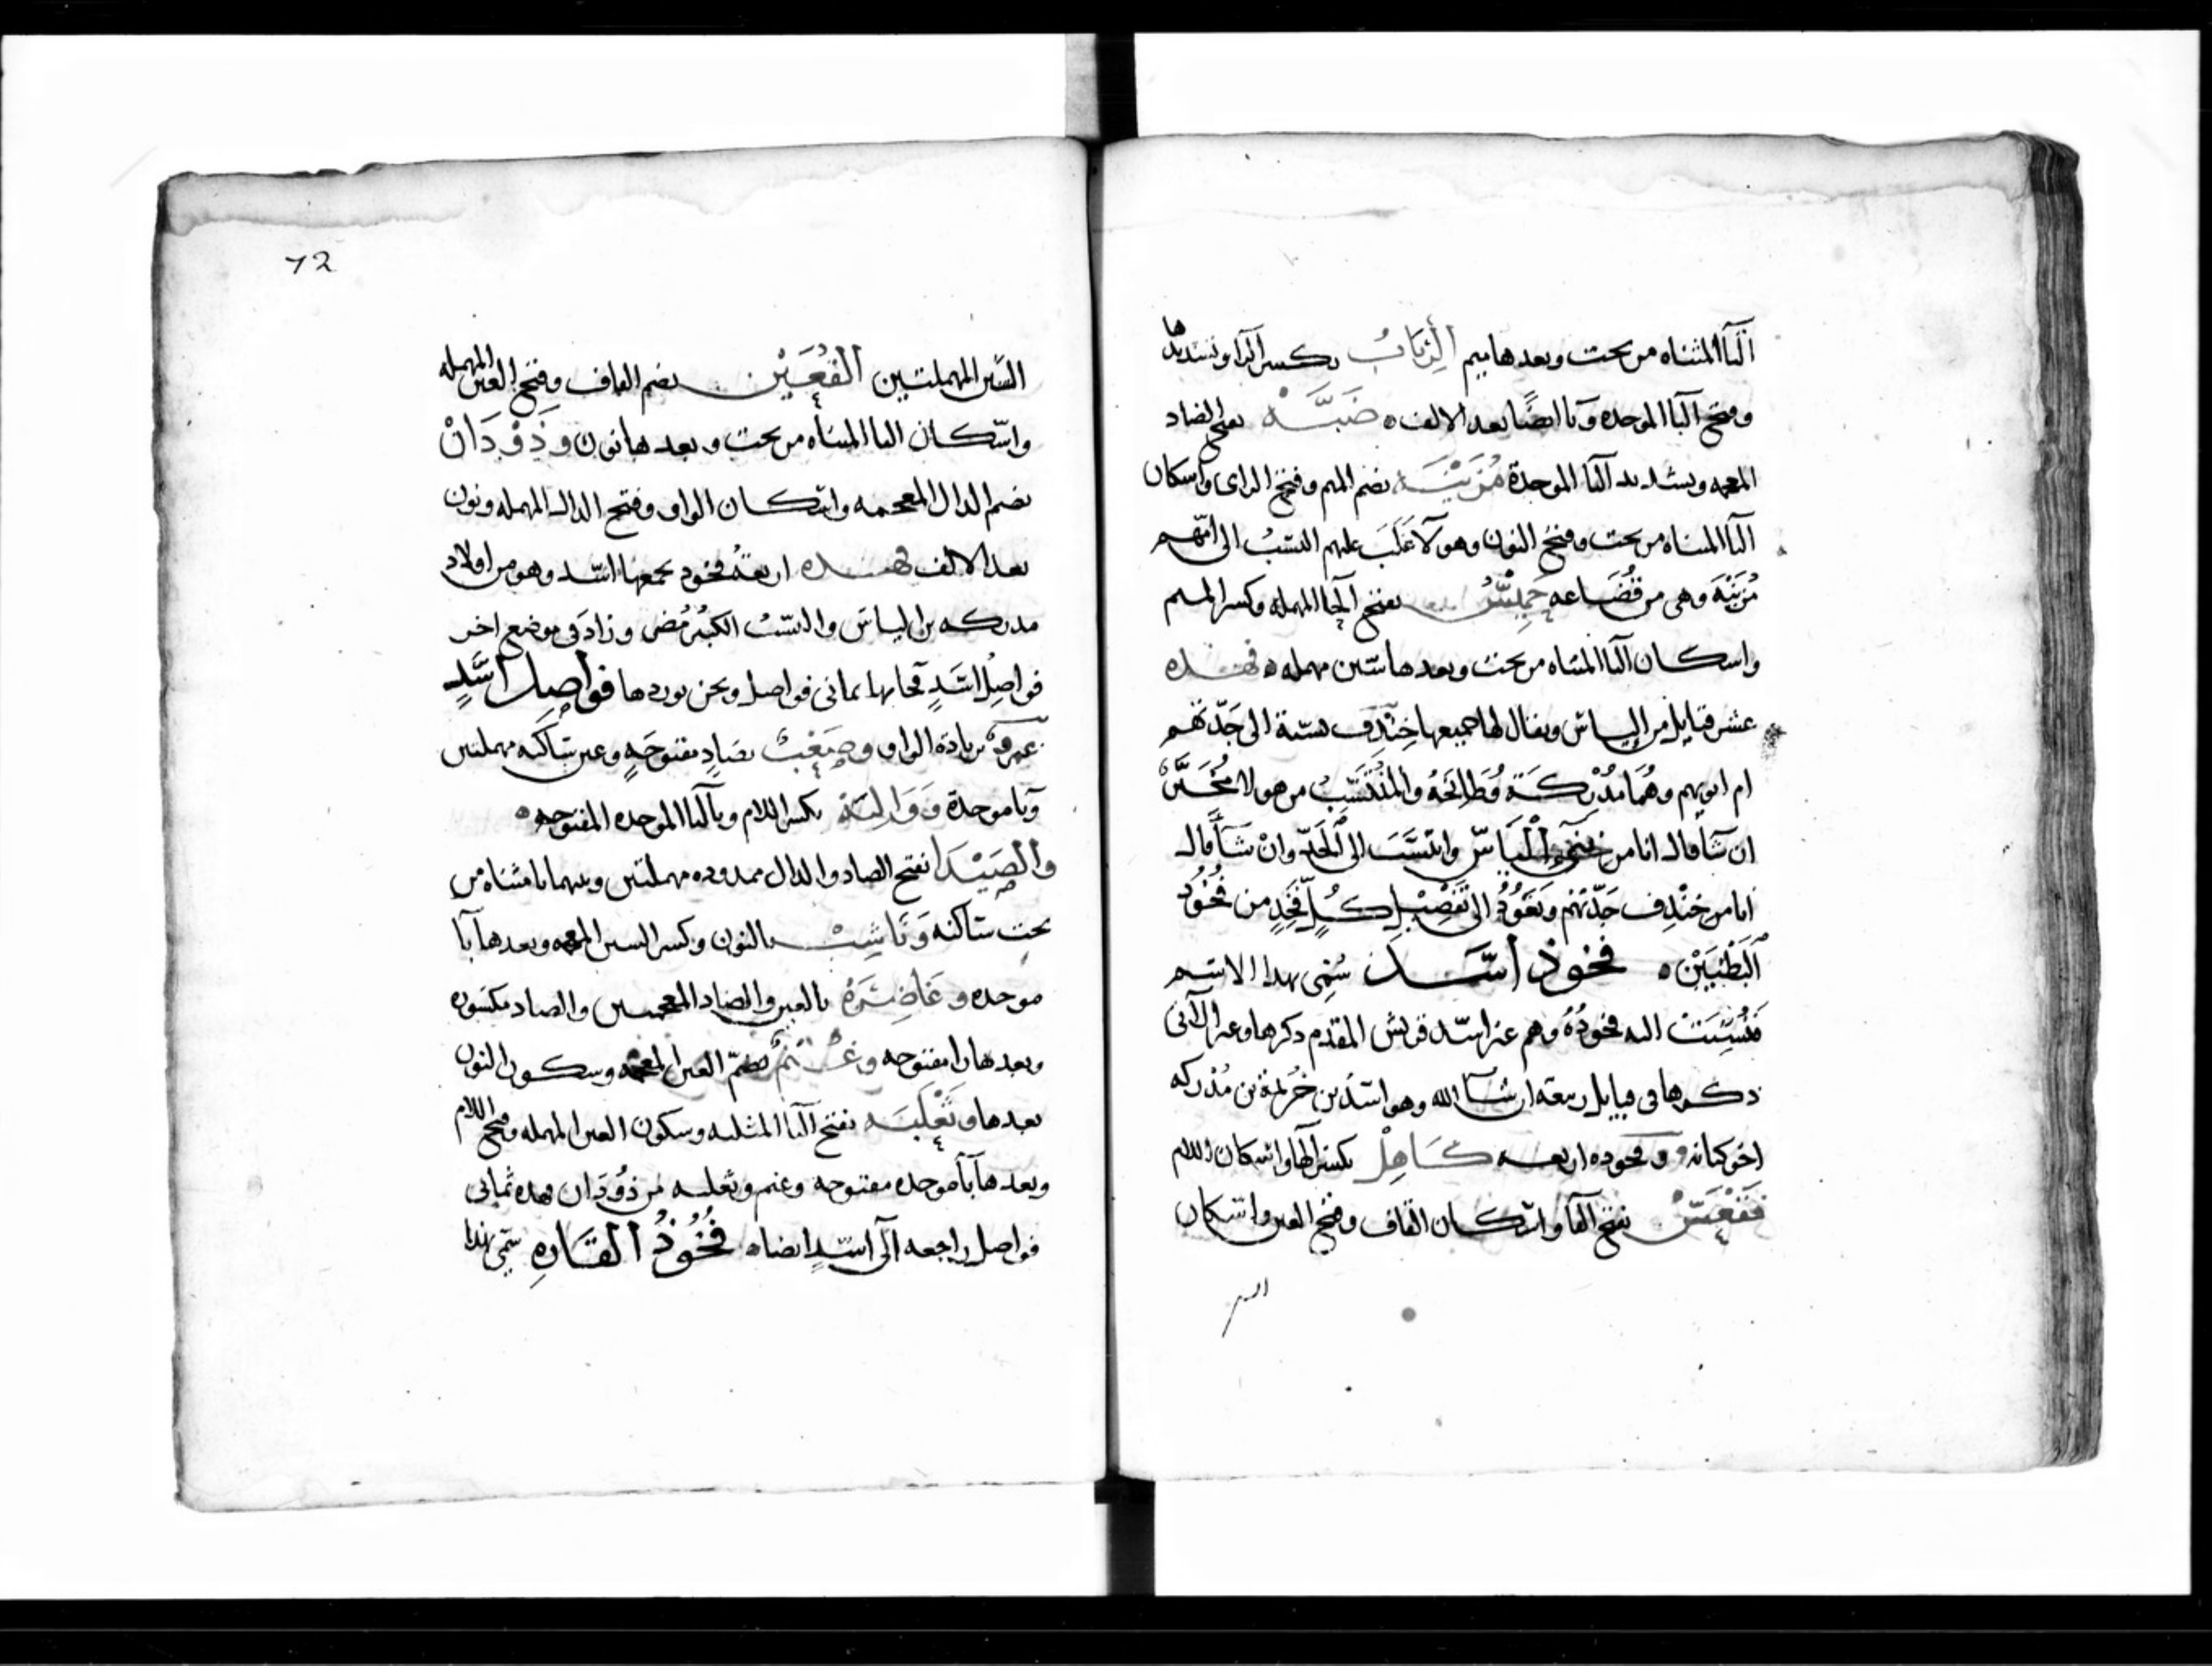 اليا المثناه من تحت وبعدها ميم الرِّبَابُ بكسر الرا وتشديدها
وفتح البا الموحده وبا ايضًا بعد الالف ه ضَبَّة بفتح الضاد
المعجمه وتشديد البا الموحدة مُزَيْنَة بضم الميم وفتح الزاى واسكان
اليا المثناه من تحت وفتح النون وهولآ غَلَبَ عليهم النسَبُ الى امّهم
مُزَيْنَة وهى من قُضَاعه حَمِيْسُ بفتح الحا المهمله وكسر الميم
واسكان اليا المثناه من تحت وبعدها سين مهمله ه فهذه
عشر قبايل من إلياس ويقال لها جميعها خِنْدِف نسبة الى جَدّتهم
ام ابويهم وهُمَا مُدْرِكَة وَطَابِخَةُ والمُنْتَسِبُ من هولا مُخَيَّرٌ
ان شَآ قال انا من بني إلْيَاسَ وانتسَبَ الى الجَدّ وانْ شَآ قال
انا من خِنْدِف جَدّتهم ونَعُوْدُ الى تفصِيْلِ كُلِّ فَخِذٍ من فُخُوْذ
البَطْنَيْنِ ه فخوذ اسَد سُمّى بهذا الاسم
فنُسِبَتْ اليه فخوذُهُ وهم غير اسَد قريش المقدم ذكرها وغير الآتى
ذكرها فى قبايل ربيعة ان شآ الله وهو اسَد بن خُزيمة بن مُدْركه
اخو كنانه وفخوذه اربعه كَاهِلْ بكسر الها واسكان اللام
فَقْعَسْ بفتح الفا واسكان القاف وفتح العين واسكان
السين
72
السّين المهملتين القُعَيْن بضم القاف وفتح العين المهمله
واسْكان اليا المثناه من تحت وبعدها نون وذُوْدَانْ
بضم الذال المعجمه واسكان الواو وفتح الدال المهمله ونون
بعد الالف فهذه اربعةُ فخوذ يجمعها اسَد وهو من اولاد
مدركه بن إلياسَ والنسَبُ الكبيْرُ مُضَر وزاد فى موضع اخر
فواصِلُ اسَدٍ فجا بها ثمانى فواصل ونحن نوردها فواصِل اسَدٍ
عمرو بزيادة الواو وصَعْبٌ بصَادٍ مفتوحَهٍ وعين سَاكنه مهملتين
وبا موحدة وَوَالِبَة بكسر اللام وبالبا الموحده المفتوحه ه
والصَيْدَا بفتح الصاد والدال ممدوده مهملتين وبينهما يا مثناه من
تحت سَاكنه وَنَاشِبْ بالنون وكسر الشين المعجمه وبعدها با
موحده وغَاضِرَةُ بالغين والضاد المعجمتين والضاد مكسوره
وبعدها را مفتوحه وغُنْمٌ بضمّ الغين المعجمه وسكون النون
بعدها وثَعْلَبَة بفتح الثا المثلثه وسكون العين المهمله وفتح اللام
وبعدها با موحده مفتوحه وغنم وثعلبه من ذُوْدَان فهذه ثمانى
فواصل راجعه الى اسَدٍ ايضا ه فُخُوْذُ القَارهِ سُمّى بهذا